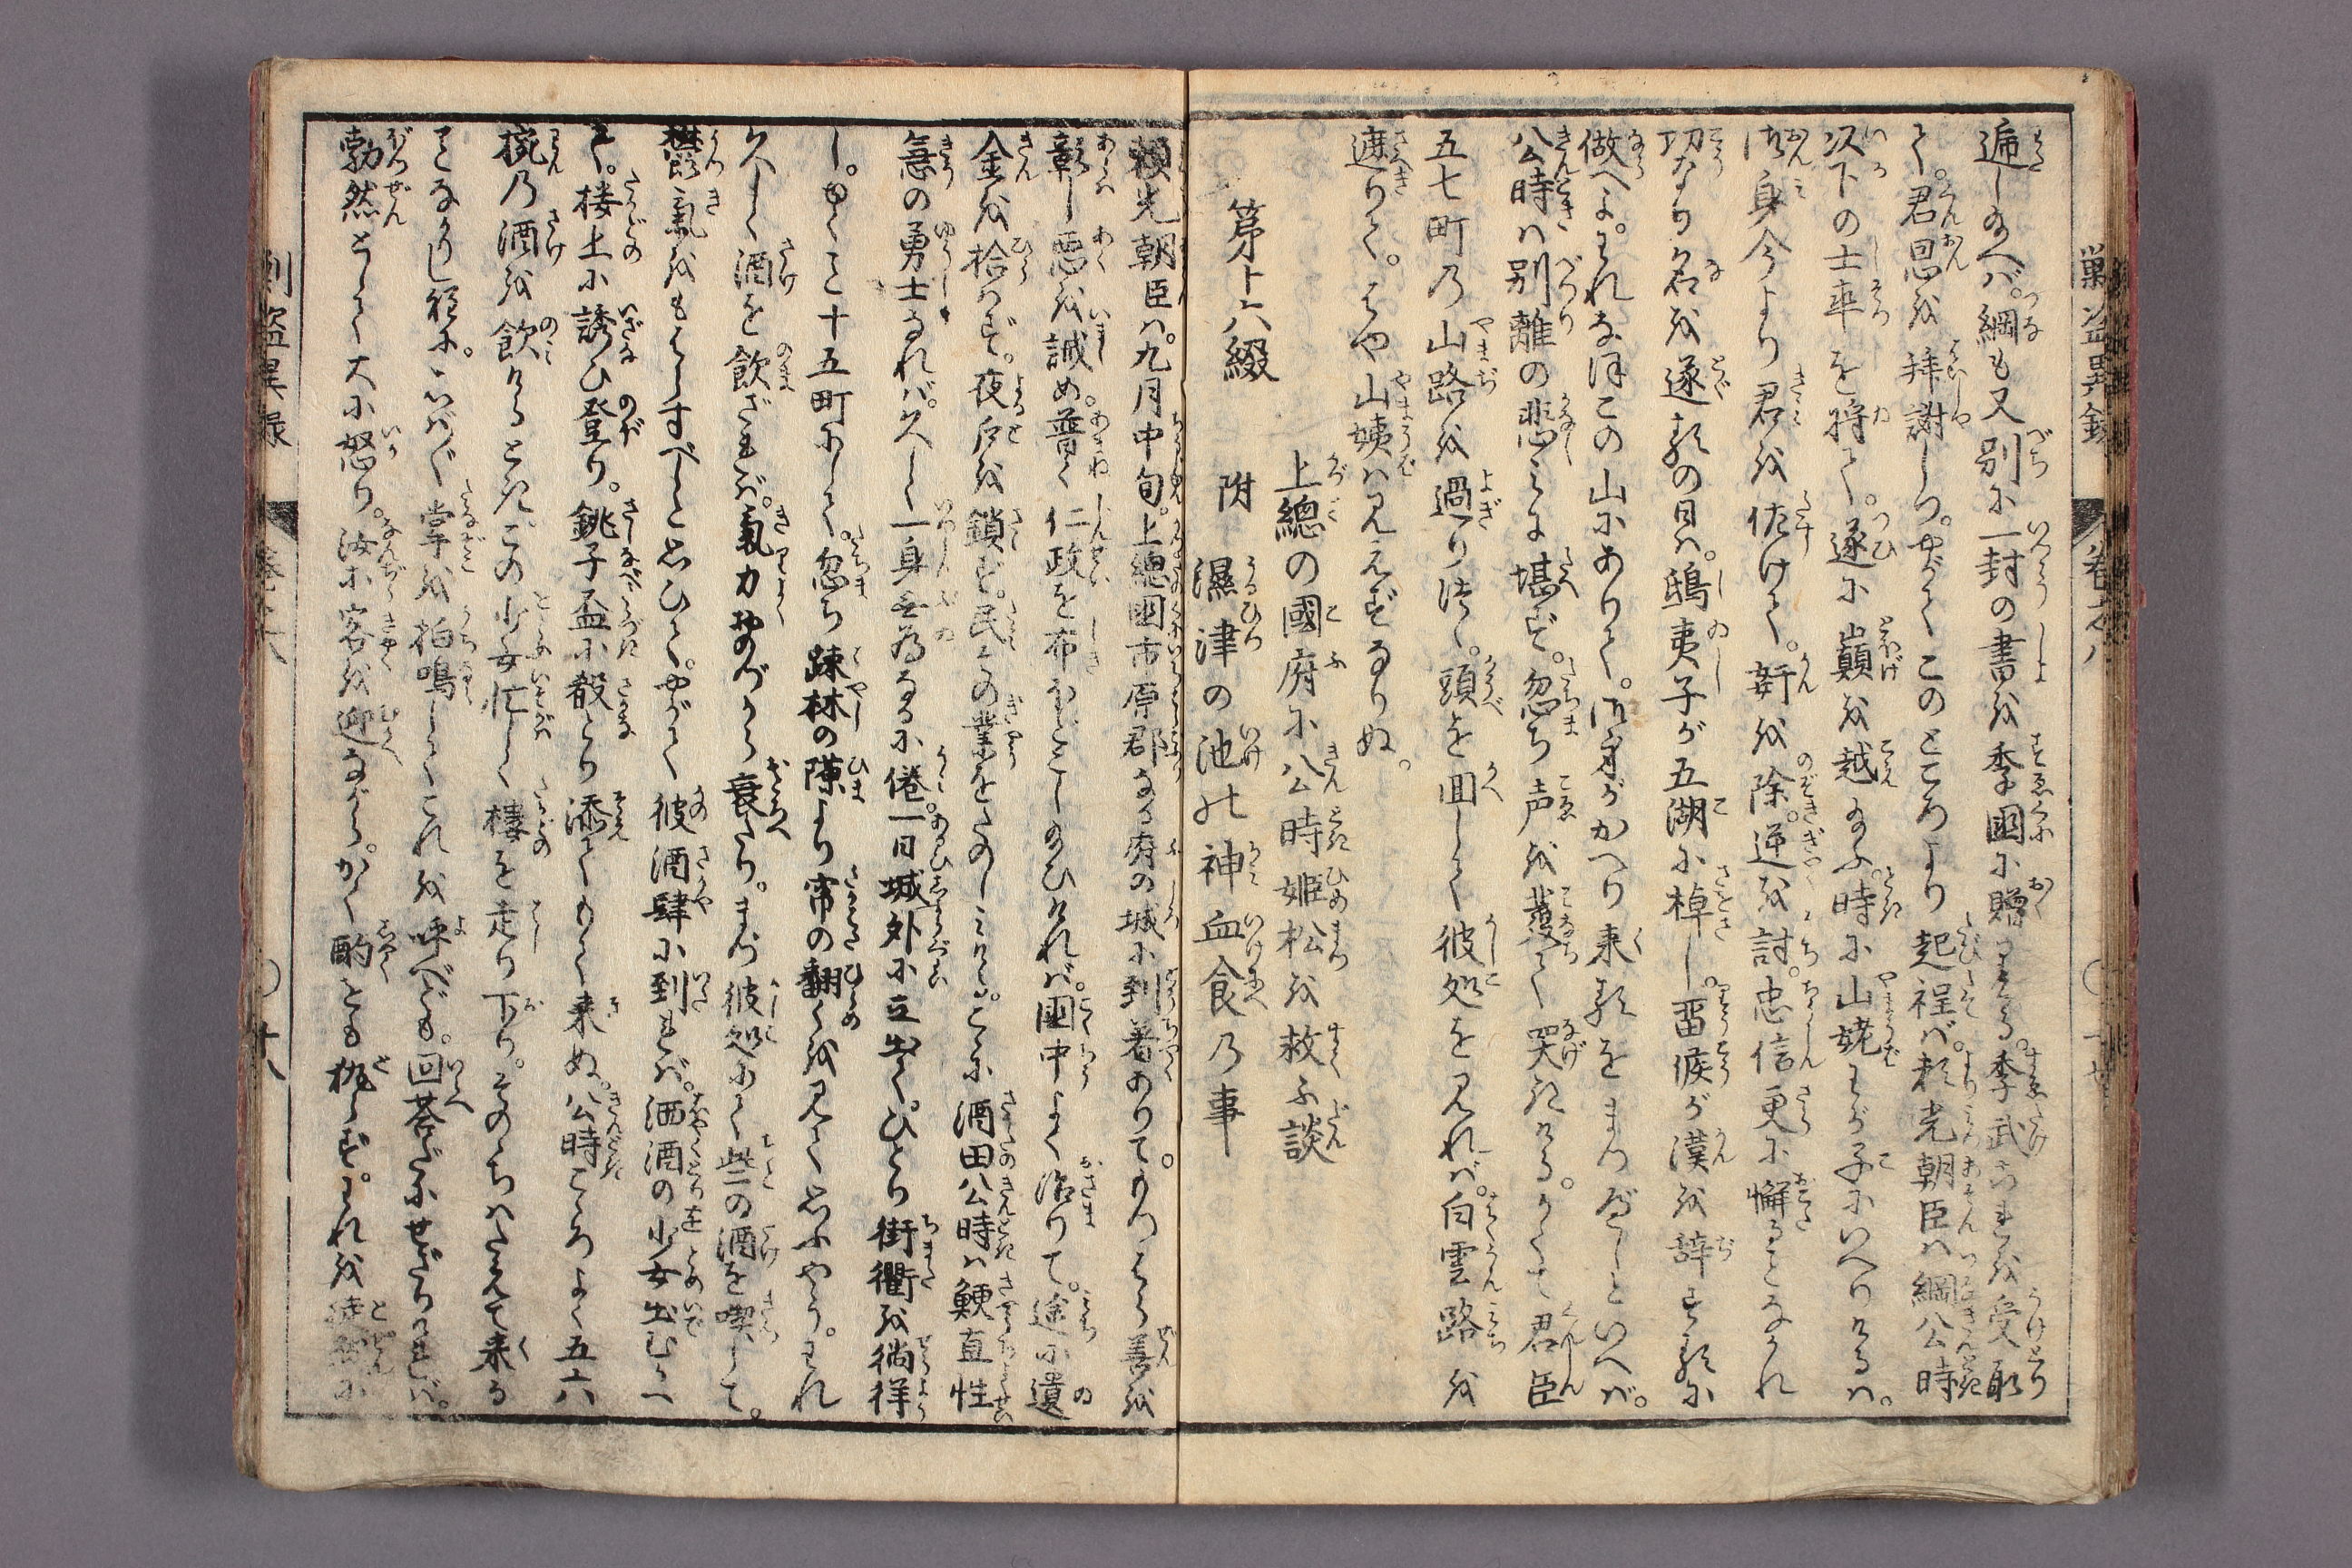 遍しゐへバ。綱も又別に一封の書を季國に贈りける。季武これを受取
て。君恩を拝謝しつ。やがてこのところより起程バ。頼光朝臣ハ綱公時
以下の士卒を将て。遂に巓を越給ふ。時に山姥わが子にいへりけるハ。
御身今より君を佐けて。奸を除。逆を討。忠信更に懈ることなかれ
功なり名を遂るの日ハ。鴟夷子が五湖に棹し。畱侯が漢を辞するに
做へよ。われなほこの山にありて。御身がかへり来るをまつべしといへバ。
公時ハ別離の悲しみに堪ず。忽ち声を發て哭きける。かくて君臣
五七町の山路を過り往て。頭を回して彼処を見れバ。白雲路を
遮りて。はや山姨ハ見えずなりぬ。
第十六綴
上總の國府に公時姫松を救ふ談
附 濕津の池の神血食の事
頼光朝臣ハ。九月中旬。上總國市原郡なる府の城に到着ありて。もつはら善を
彰し惡を誡め。普く仁政を布ほどこし給ひけれバ。國中よく治りて。途に遺
金を拾はず。夜戸を鎖ず。民その業をたのしみける。こゝに酒田公時ハ鯁直性
急の勇士なれバ。久しく一身無為なるに倦。一日城外に立出て。ひとり街衢を徜徉
し。ゆくこと十五町にして。忽ち疎林の隙より帘の翻るを見て思ふやう。われ
久しく酒を飲ざれバ。氣力おのづから衰たり。まづ彼処にて些の酒を喫して。
欝氣をもはらすべしと思ひて。やがて彼酒肆に到れバ。酒の少女出むかへ
て。楼上に誘ひ登り。銚子盃に殽とり添てもて来ぬ。公時こゝろよく五六
椀の酒を飲けるとき。この少女忙しく樓を走り下り。そのゝちハたえて来る
ことなかりし程に。しバ〳〵掌を拍鳴してこれを呼べども。回荅だにせざりけれバ。
勃然として大に怒り。汝等客を迎ながら。かく酌とも執らず。われを徒然に
巻之八